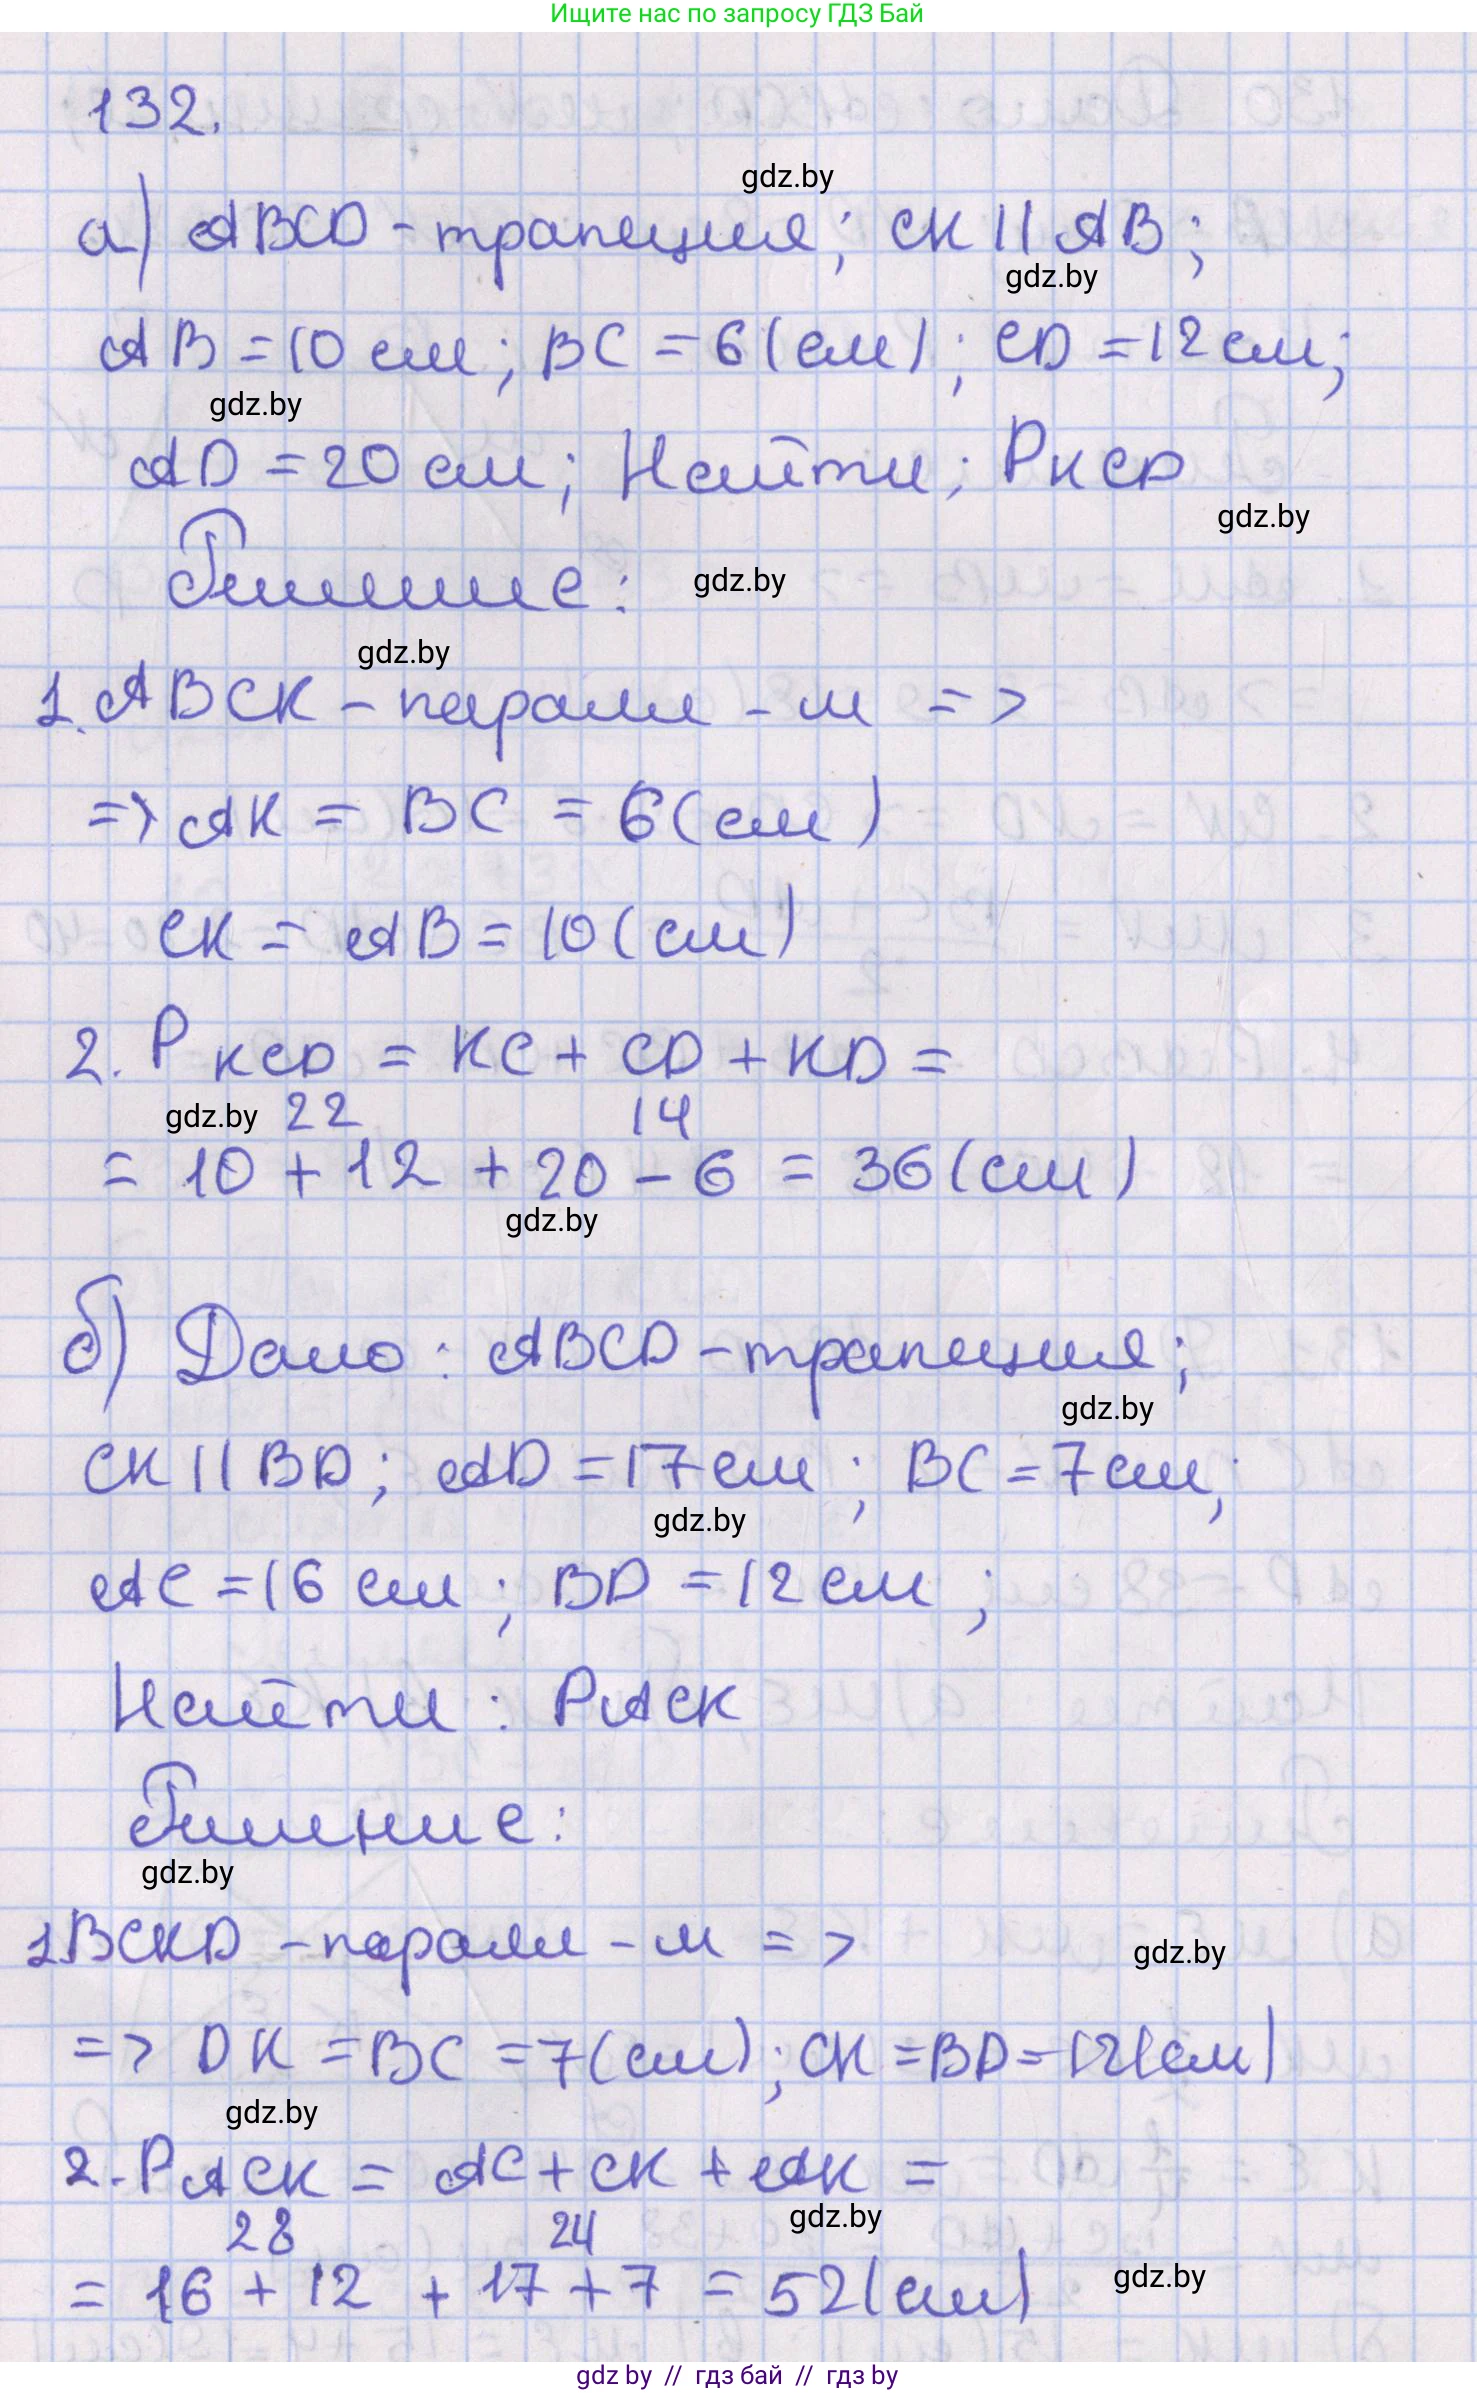 Ищите нас по запросу ГДЗ Бай
132.
gdz.by
а) ABCD - трапеция; CK || AB;
gdz.by
AB = 10 см; BC = 6 (см); CD = 12 см;
gdz.by
AD = 20 см; Найти; PKCD
gdz.by
Решение:
gdz.by
gdz.by
1. ABCK - паралл - м =>
=> AK = BC = 6 (см)
CK = AB = 10 (см)
2. PKCD = KC + CD + KD =
gdz.by 22 14
= 10 + 12 + 20 - 6 = 36 (см)
gdz.by
б) Дано: ABCD - трапеция;
gdz.by
CK || BD; AD = 17 см; BC = 7 см;
gdz.by
AC = 16 см; BD = 12 см;
Найти: PACK
Решние:
gdz.by
1 BCKD - паралл - м =>
gdz.by
=> DK = BC = 7 (см); CK = BD = 12 (см)
gdz.by
2. PACK = AC + CK + AK =
gdz.by
28 24
= 16 + 12 + 17 + 7 = 52 (см)
gdz.by
gdz by // гдз бай // гдз by